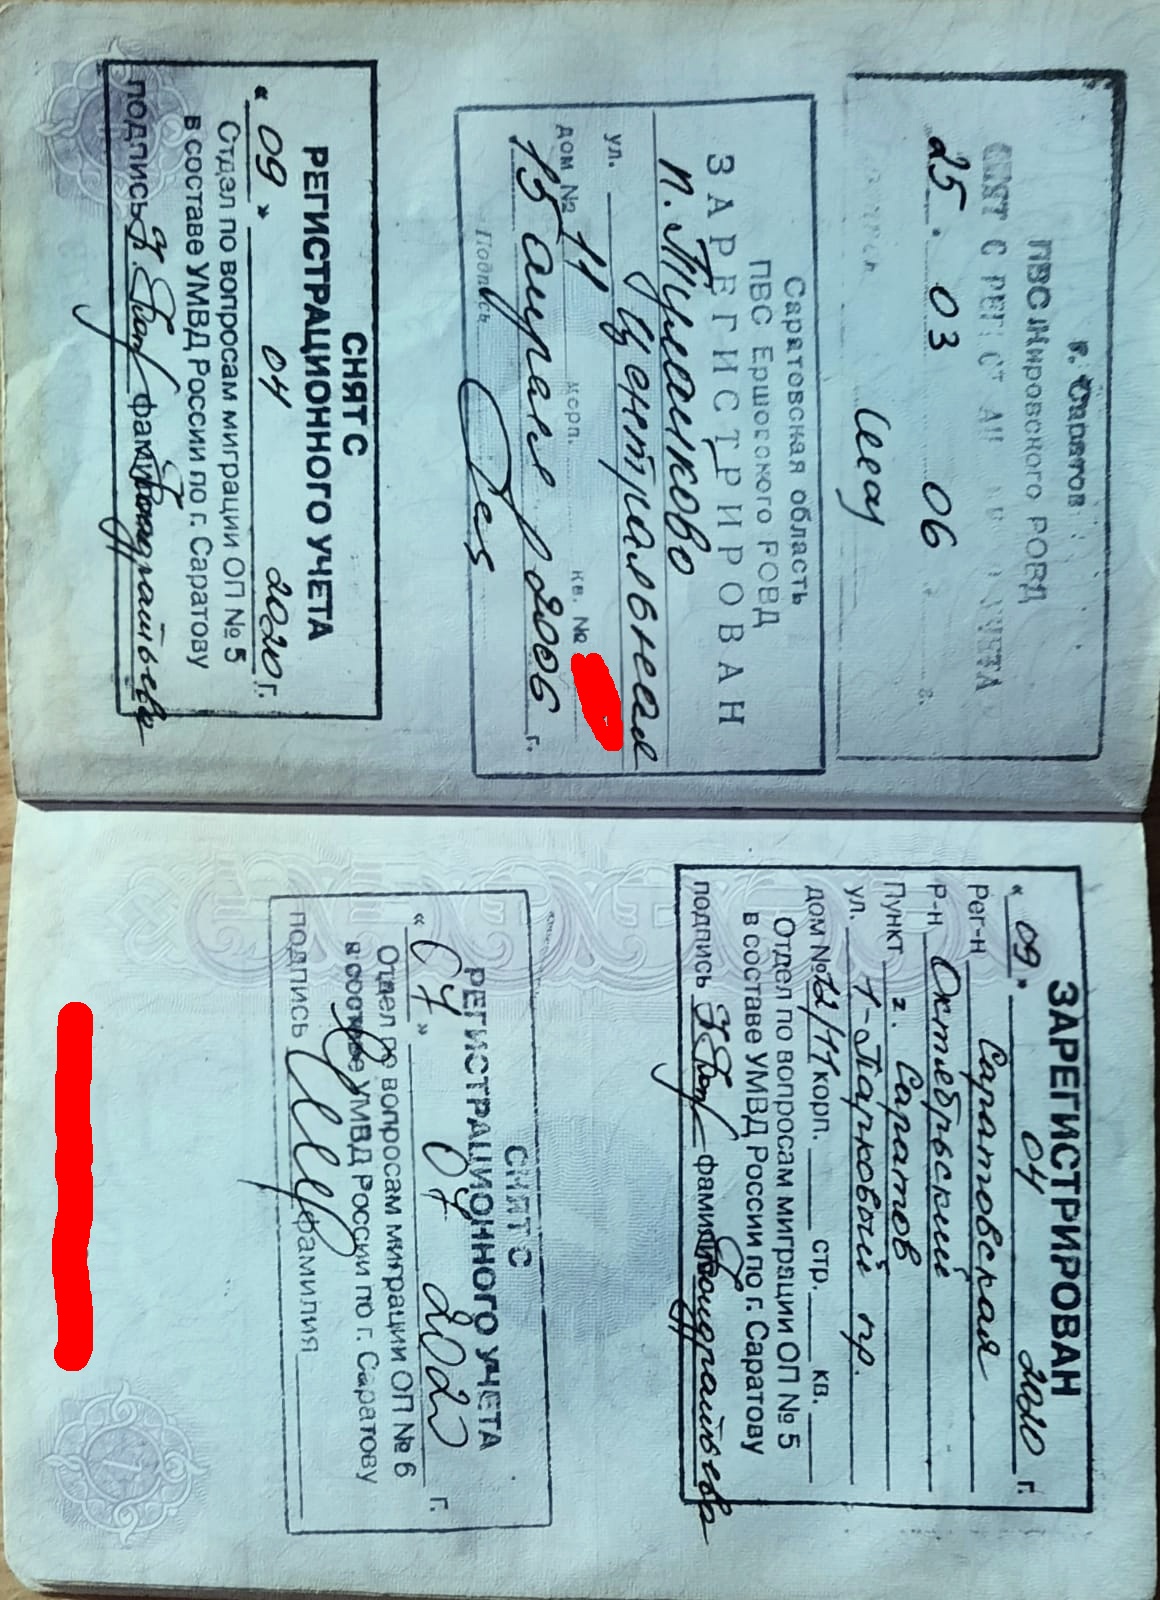 г. Саратов
ПВС Кировского РОВД
СНЯТ С РЕГИСТРАЦИОННОГО УЧЕТА
25. 03 06
Саратовская область
ПВС Ершовского РОВД
ЗАРЕГИСТРИРОВАН
п. Тулайково
ул. Центральная
дом № 11 корп. кв. №
15 апреля 2006 г.
Подпись
СНЯТ С
РЕГИСТРАЦИОННОГО УЧЕТА
« 09 » 04 2020 г.
Отдел по вопросам миграции ОП № 5
в составе УМВД России по г. Саратову
подпись фамилия
ЗАРЕГИСТРИРОВАН
« 09 » 04 2020 г.
Рег-н Саратовская
Р-н Октябрьский
Пункт г. Саратов
ул. 1-Парковый пр.
дом № 12/11 корп. стр. кв.
Отдел по вопросам миграции ОП № 5
в составе УМВД России по г. Саратову
подпись фамилия
СНЯТ С
РЕГИСТРАЦИОННОГО УЧЕТА
« 07 » 07 2022 г.
Отдел по вопросам миграции ОП № 6
в составе УМВД России по г. Саратову
подпись фамилия